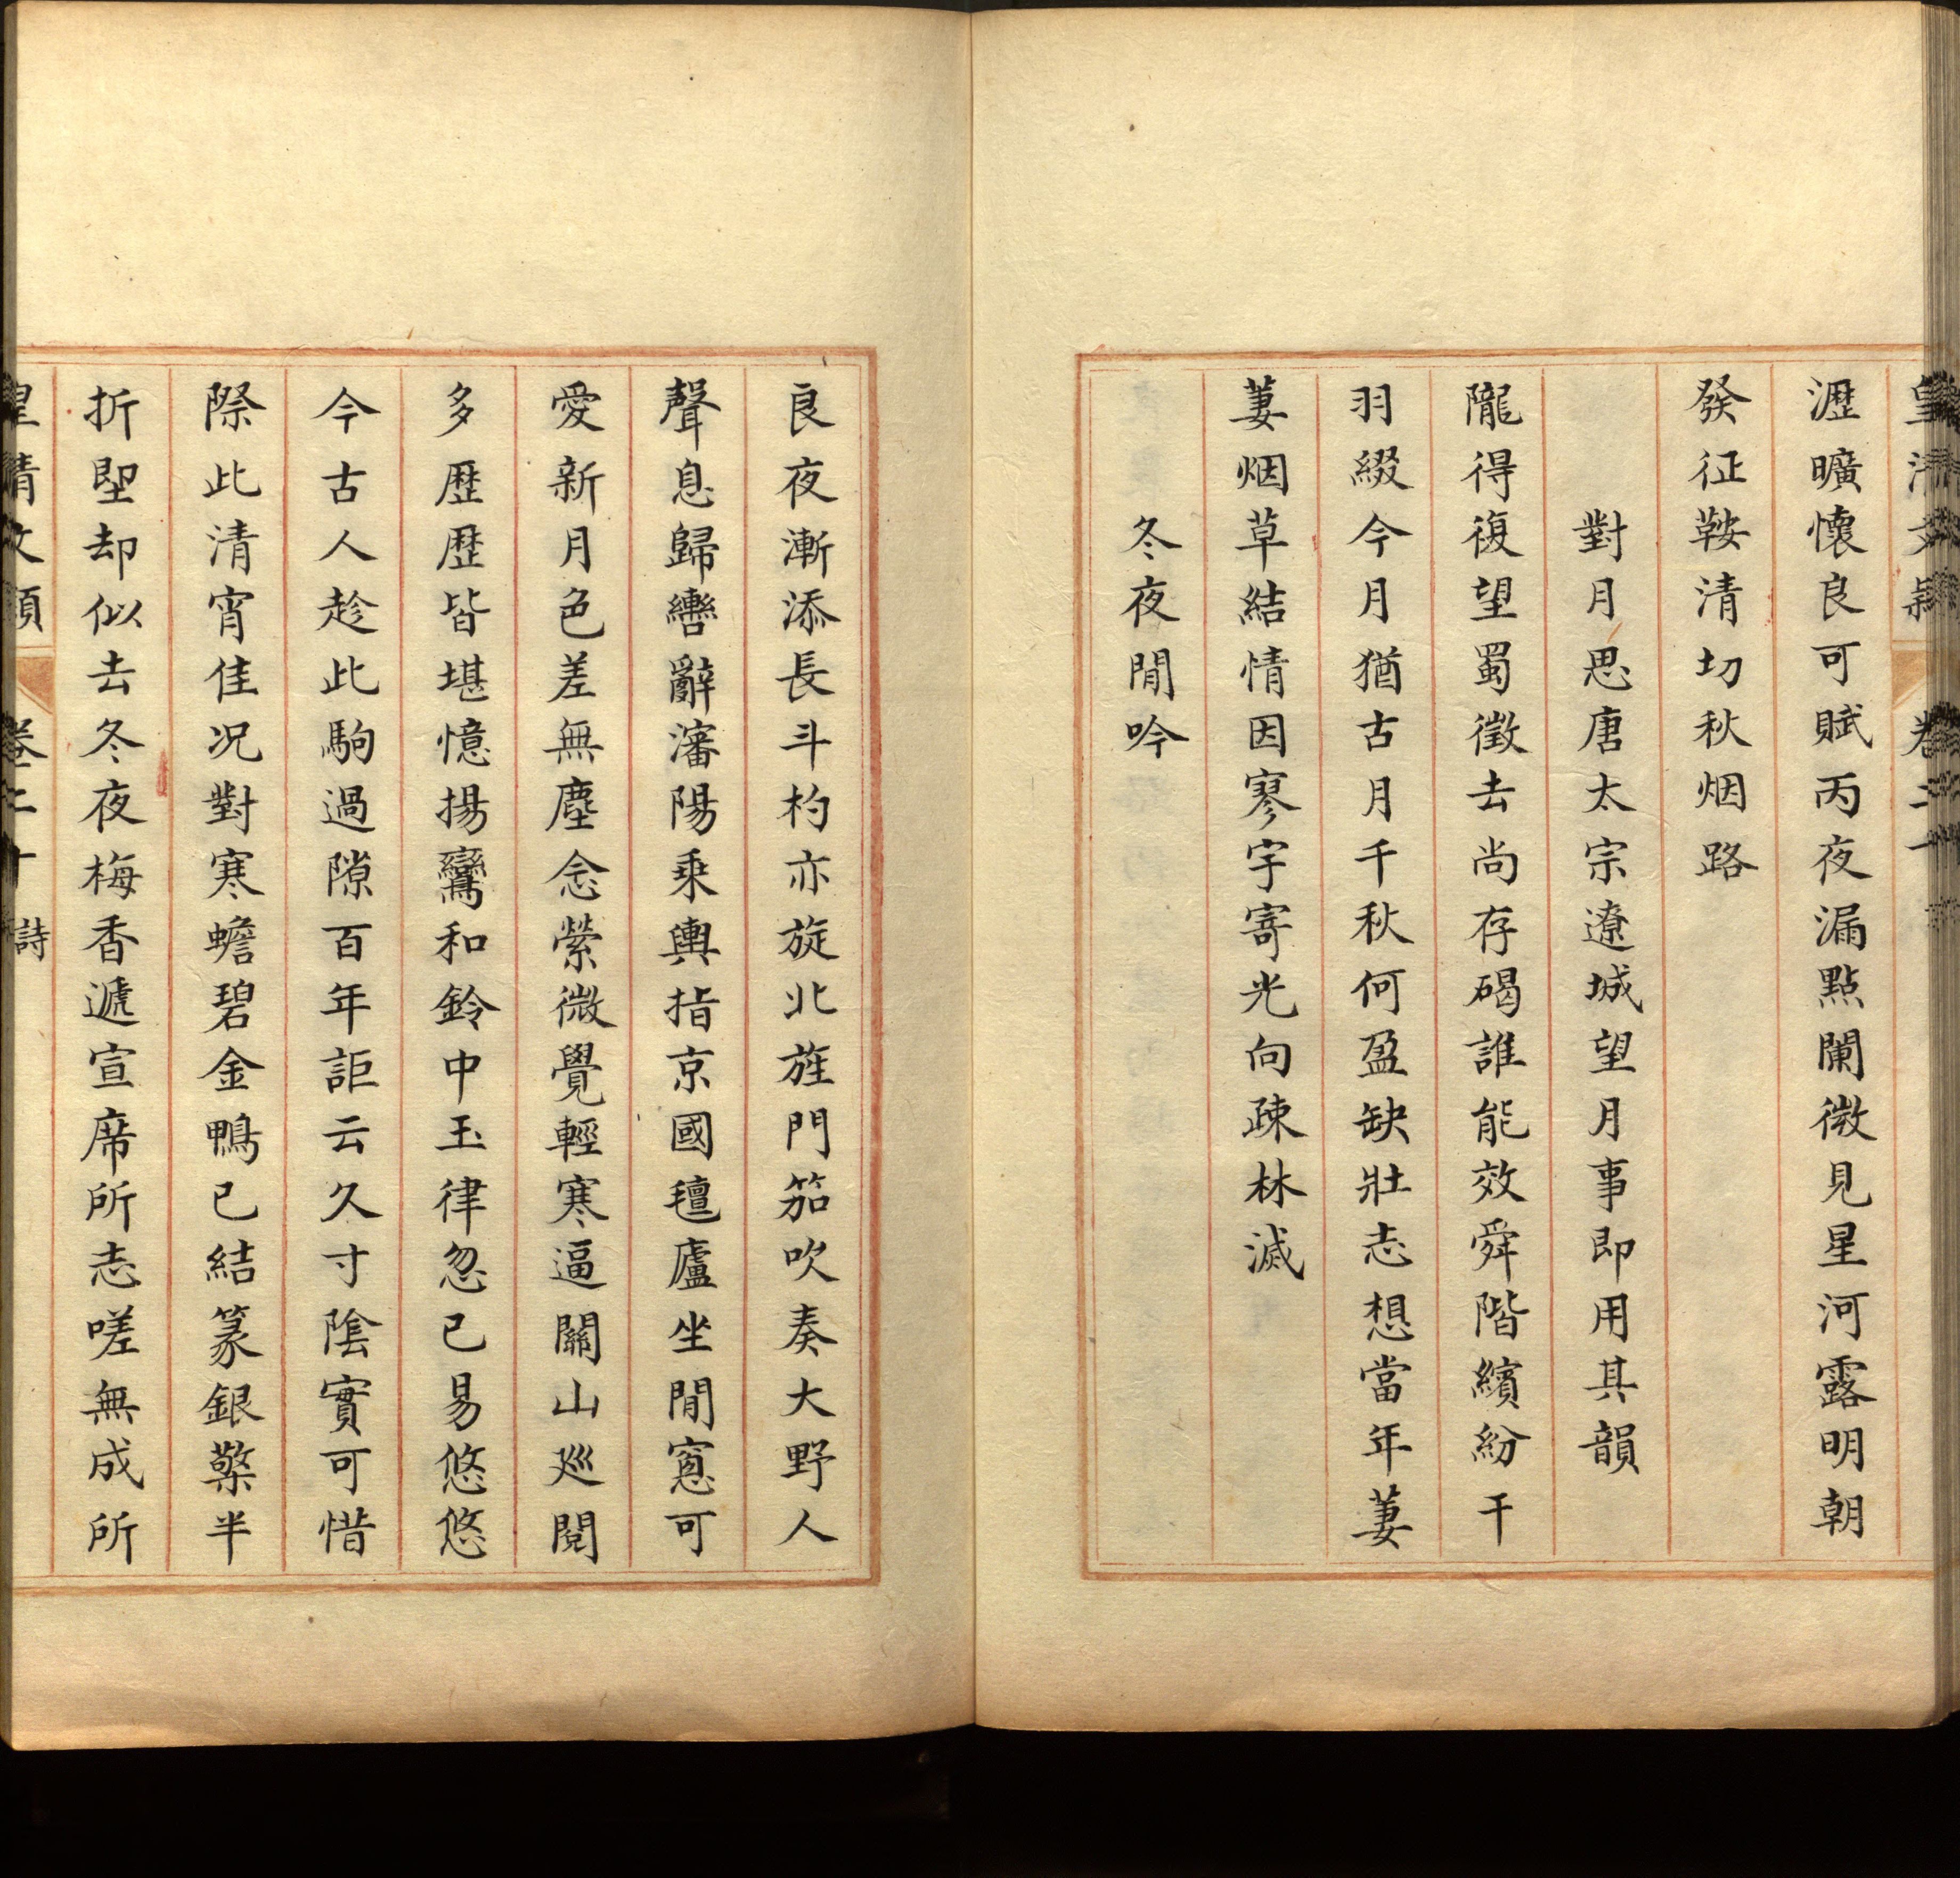 皇清文穎 卷二十
瀝曠懷良可賦丙夜漏點闌微見星河露明朝
發征鞍清切秋烟路
對月思唐太宗遼城望月事即用其韻
隴得復望蜀徵去尚存碣誰能效舜階繽紛干
羽綴今月猶古月千秋何盈缺壯志想當年萋
萋烟草結情因寥宇寄光向疎林滅
冬夜閒吟
良夜漸添長斗杓亦旋北旌門笳吹奏大野人
聲息歸轡辭瀋陽乘輿指京國氊廬坐閒寬可
愛新月色差無塵念縈微覺輕寒逼關山廵閱
多歷歷皆堪憶揚鸞和鈴中玉律忽已易悠悠
今古人趁此駒過隙百年詎云久寸陰實可惜
際此清宵佳况對寒蟾碧金鴨已結篆銀檠半
折堲却似去冬夜梅香遞宣席所志嗟無成所
皇清文穎 卷二十 詩